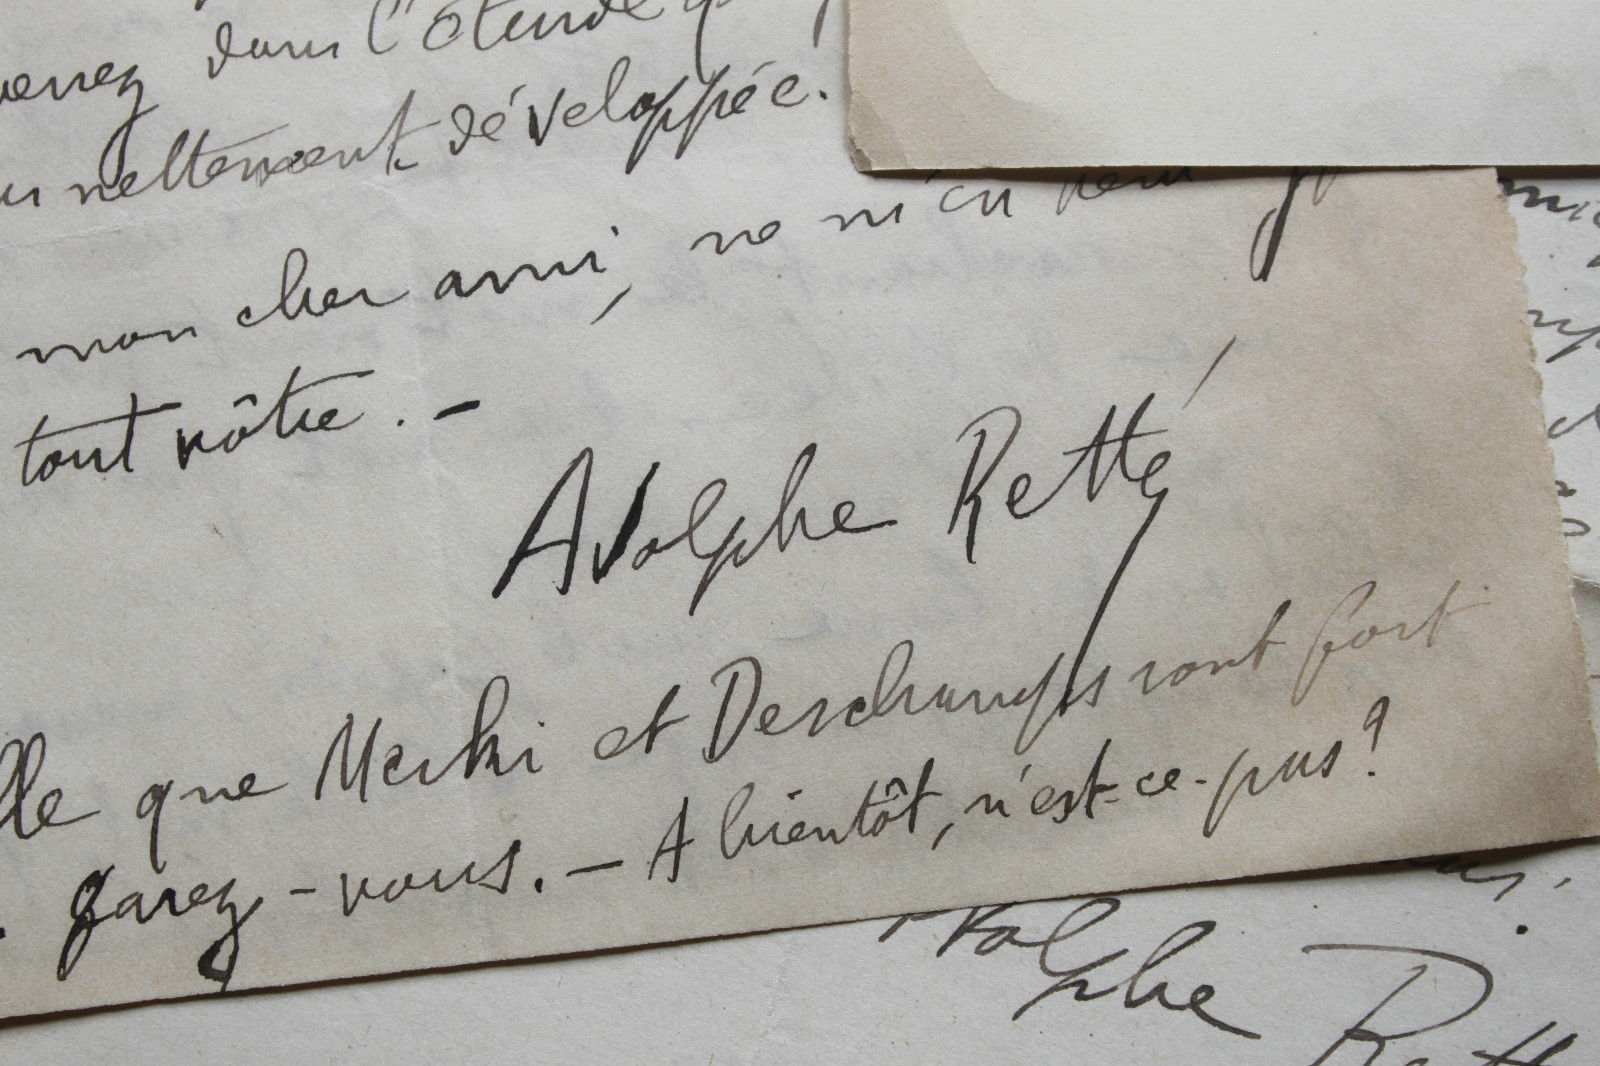 verrez dans l'étude
nettement développée.
mon cher ami, ne m'en
tout vôtre. –
Adolphe Retté
que Merki et Deschamps sont fort
garez-vous. – A bientôt, n'est-ce-pas?
Adolphe Rett